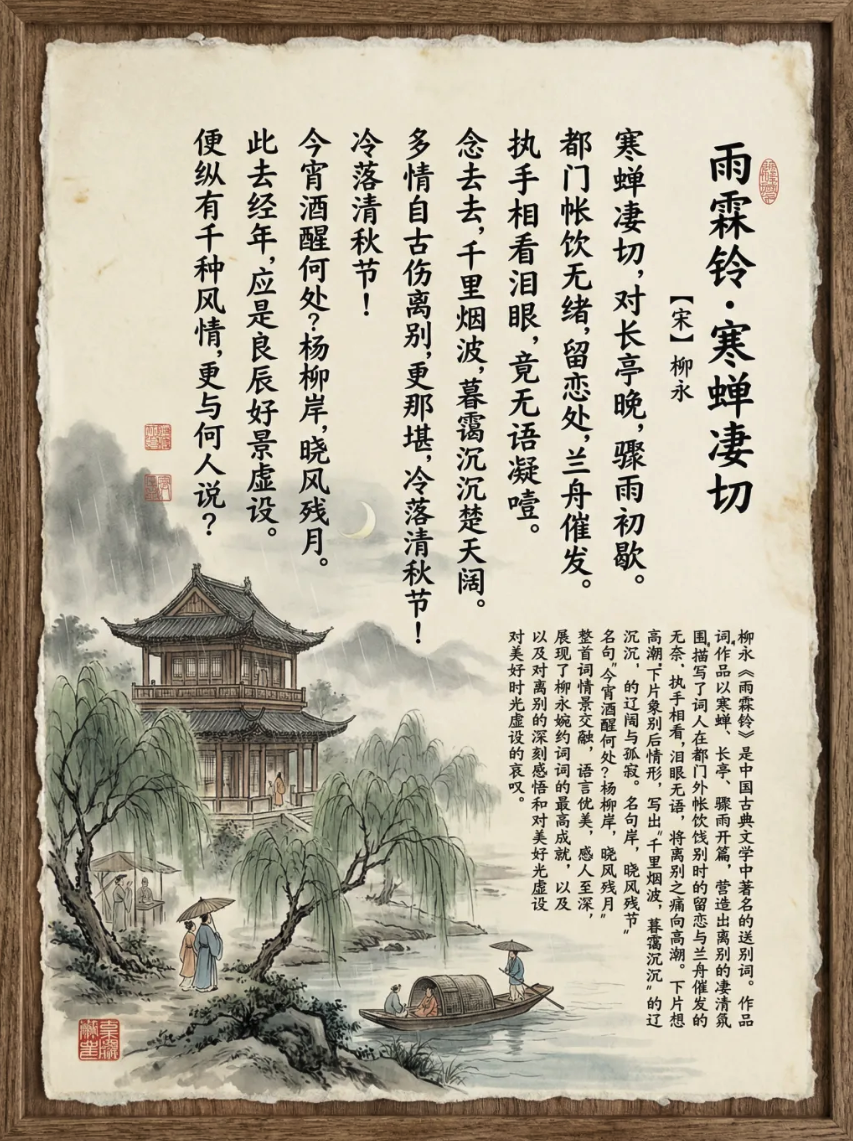 雨霖铃·寒蝉凄切
【宋】柳永
寒蝉凄切，对长亭晚，骤雨初歇。
都门帐饮无绪，留恋处，兰舟催发。
执手相看泪眼，竟无语凝噎。
念去去，千里烟波，暮霭沉沉楚天阔。
多情自古伤离别，更那堪，冷落清秋节！
冷落清秋节！
今宵酒醒何处？杨柳岸，晓风残月。
此去经年，应是良辰好景虚设。
便纵有千种风情，更与何人说？
柳永《雨霖铃》是中国古典文学中著名的送别词。作品
词，作品以寒蝉、长亭、骤雨开篇，营造出离别的凄清氛
围，描写了词人在都门外帐饮饯别时的留恋与兰舟催发的
无奈、执手相看，泪眼无语，将离别之痛向高潮。下片想
高潮。下片象别后情形，写出“千里烟波，暮霭沉沉”的辽
沉沉，的辽阔与孤寂。名句岸，晓风残节”
名句“今宵酒醒何处？杨柳岸，晓风残月”
整首词情景交融，语言优美，感人至深，
展现了柳永婉约词词的最高成就，以及
以及对离别的深刻感悟和对美好光虚设
对美好时光虚设的哀叹。